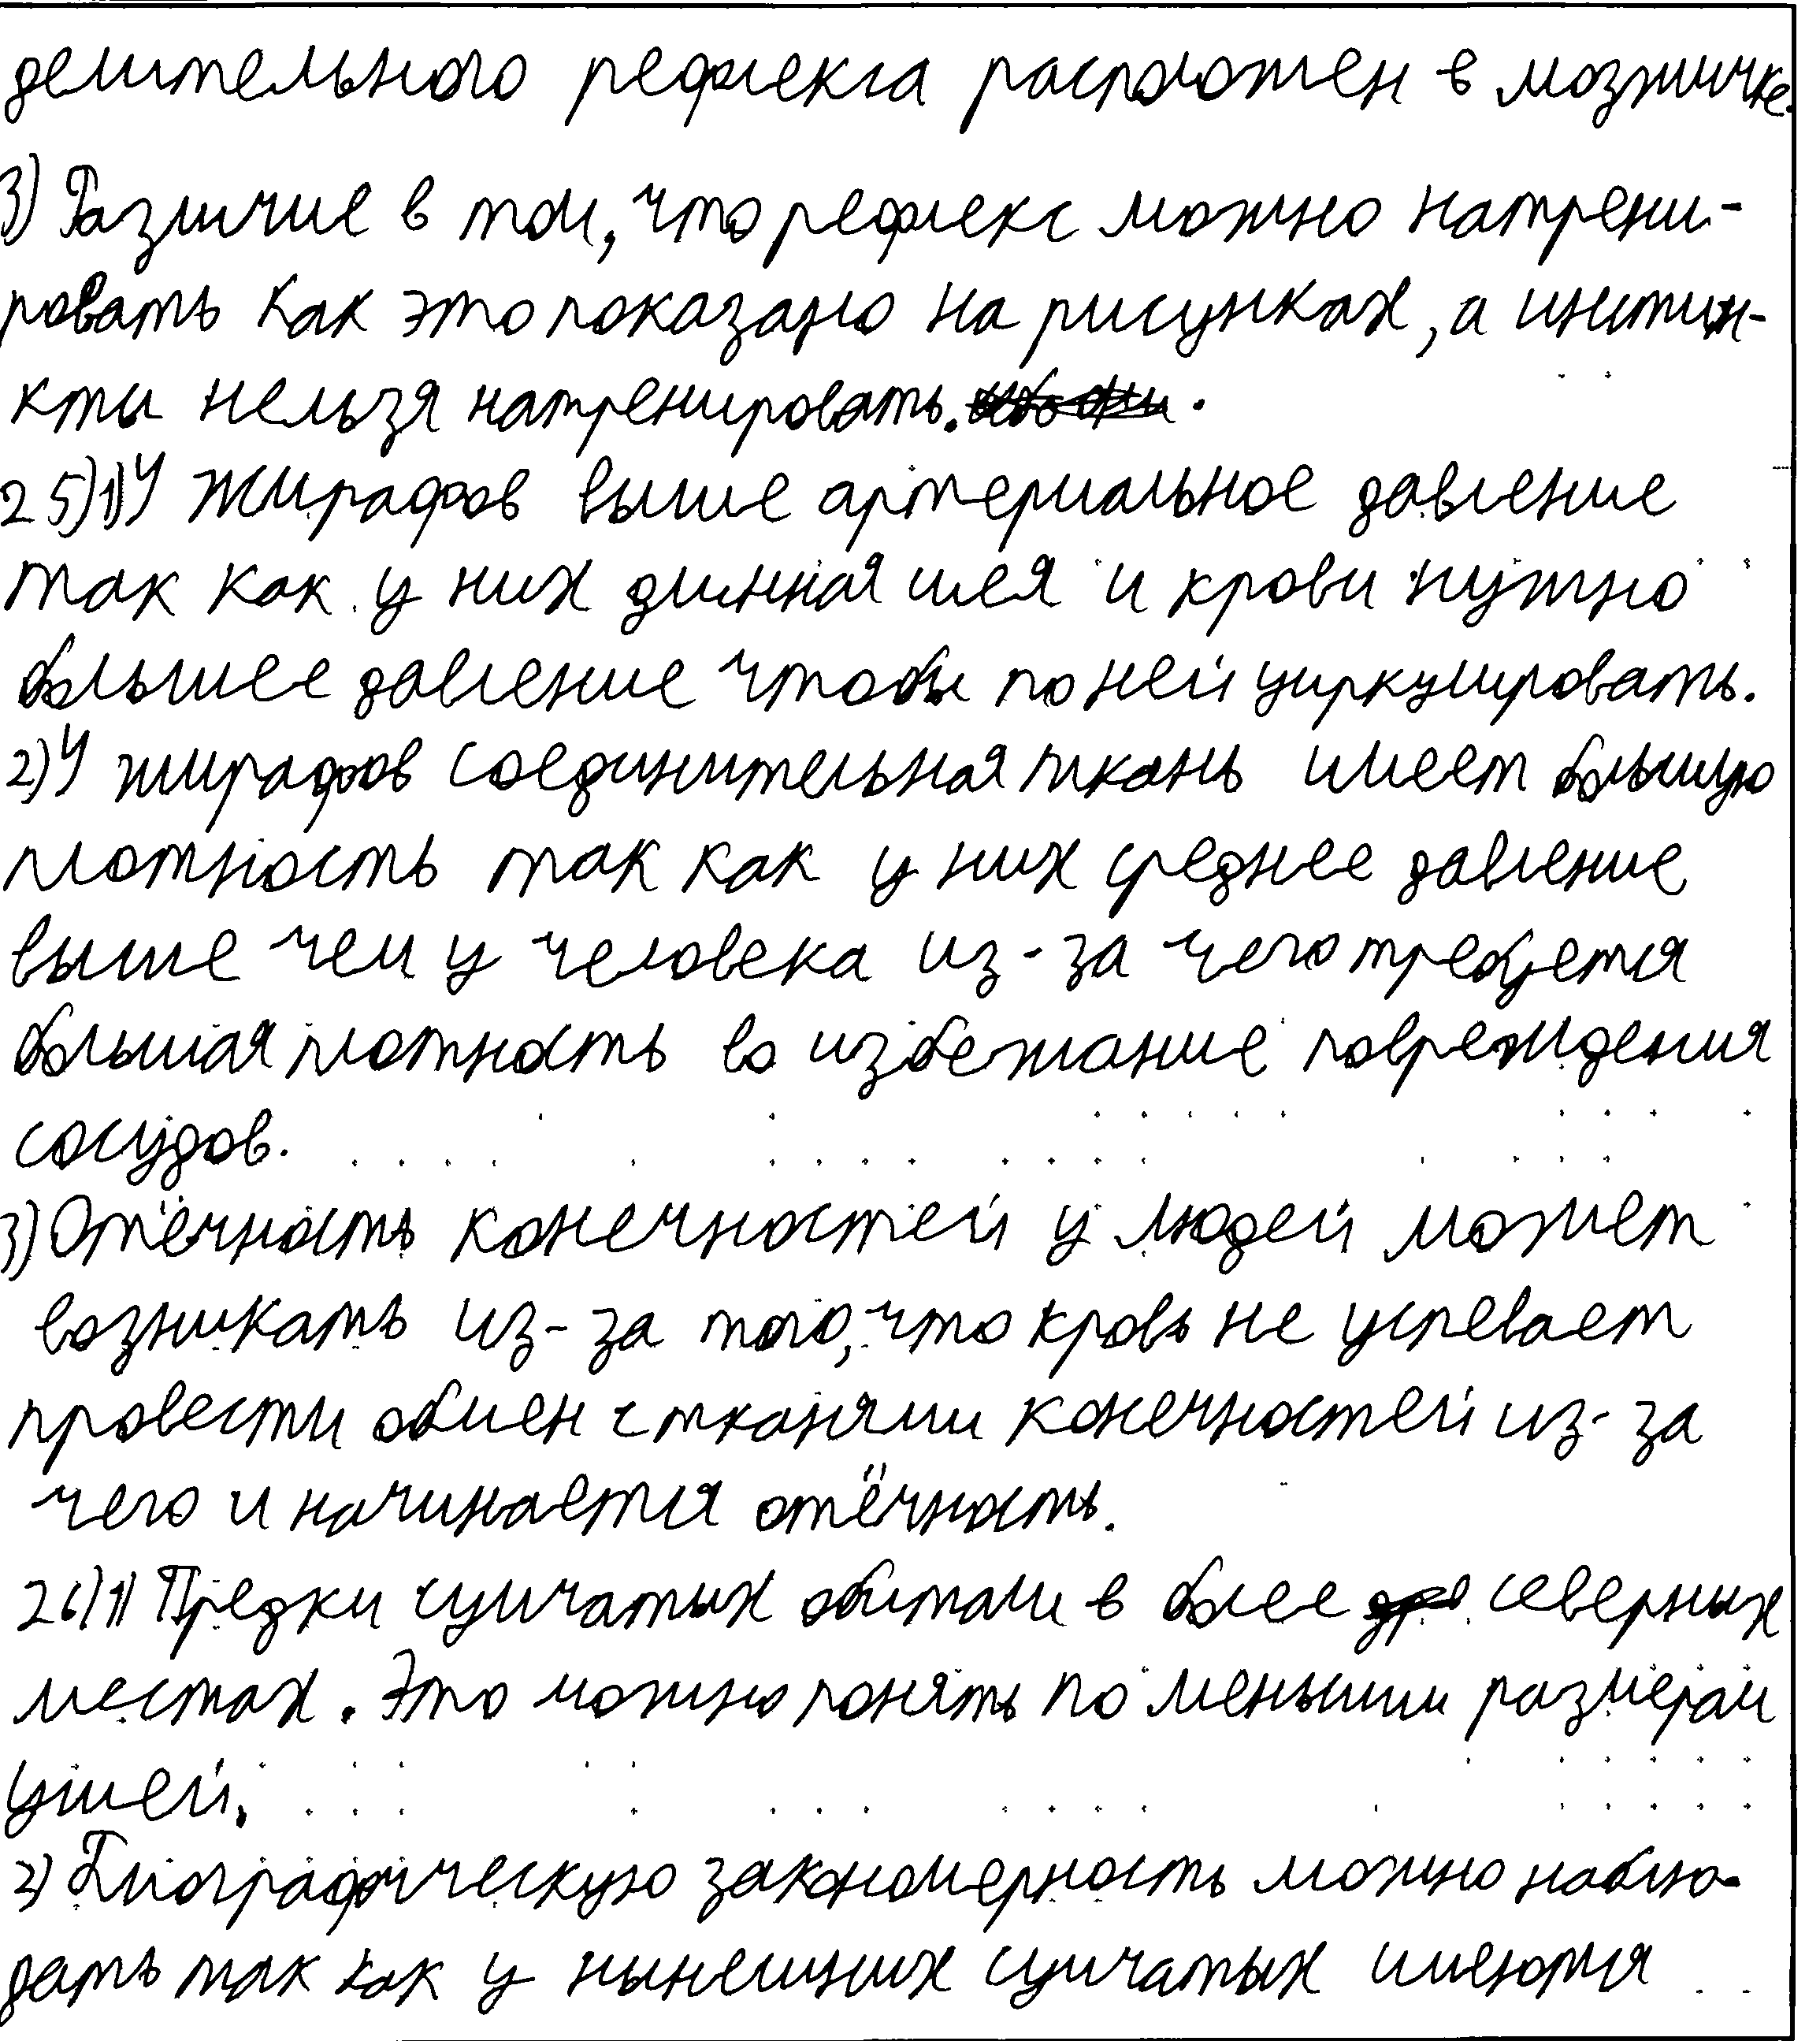 делительного рефлекса расположен в мозжичке.
3) Различие в том, что рефлекс можно натрени-
ровать как это показано на рисунках, а инстин-
кты нельзя натренировать.
25) 1) У жирафов выше артериальное давление
так как у них длинная шея и крови нужно
большее давление чтобы по ней циркулировать.
2) У жирафов соединительная ткань имеет большую
плотность так как у них среднее давление
выше чем у человека из-за чего требуется
большая плотность во избежание повреждения
сосудов.
3) Отёчность конечностей у людей может
возникать из-за того, что кровь не успевает
провести обмен с тканями конечностей из-за
чего и начинается отёчность.
26) 1) Предки сумчатых обитали в более северных
местах. Это можно понять по меньшим размерам
ушей.
2) Биографическую закономерность можно наблю-
дать так как у нынешних сумчатых имеются